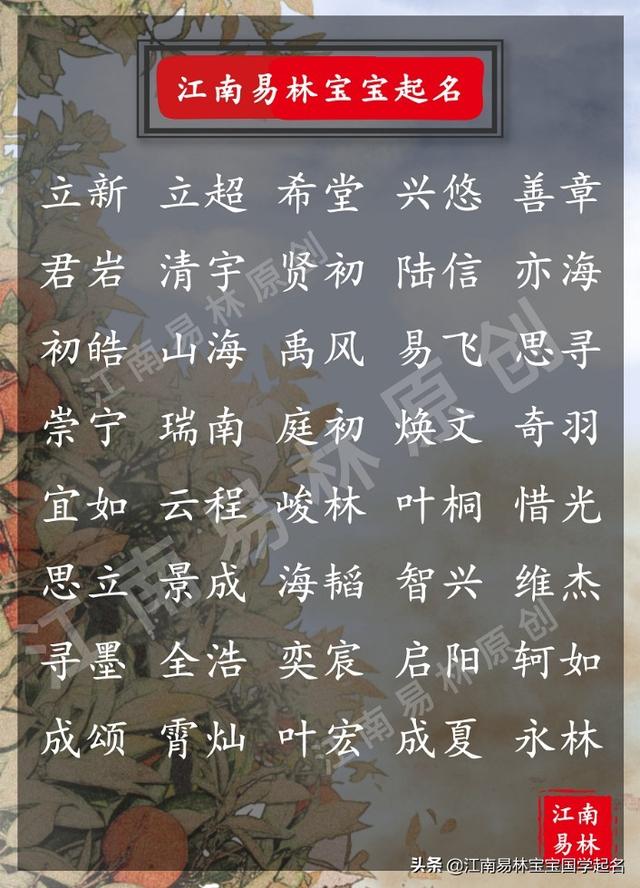 江南易林宝宝起名
立新 立超 希堂 兴悠 善章
君岩 清宇 贤初 陆信 亦海
初皓 山海 禹风 易飞 思寻
崇宁 瑞南 庭初 焕文 奇羽
宜如 云程 峻林 叶桐 惜光
思立 景成 海韬 智兴 维杰
寻墨 全浩 奕宸 启阳 轲如
成颂 霄灿 叶宏 成夏 永林
江南易林原创
江南易林原创
江南易林原创
江南
易林
头条 @江南易林宝宝国学起名